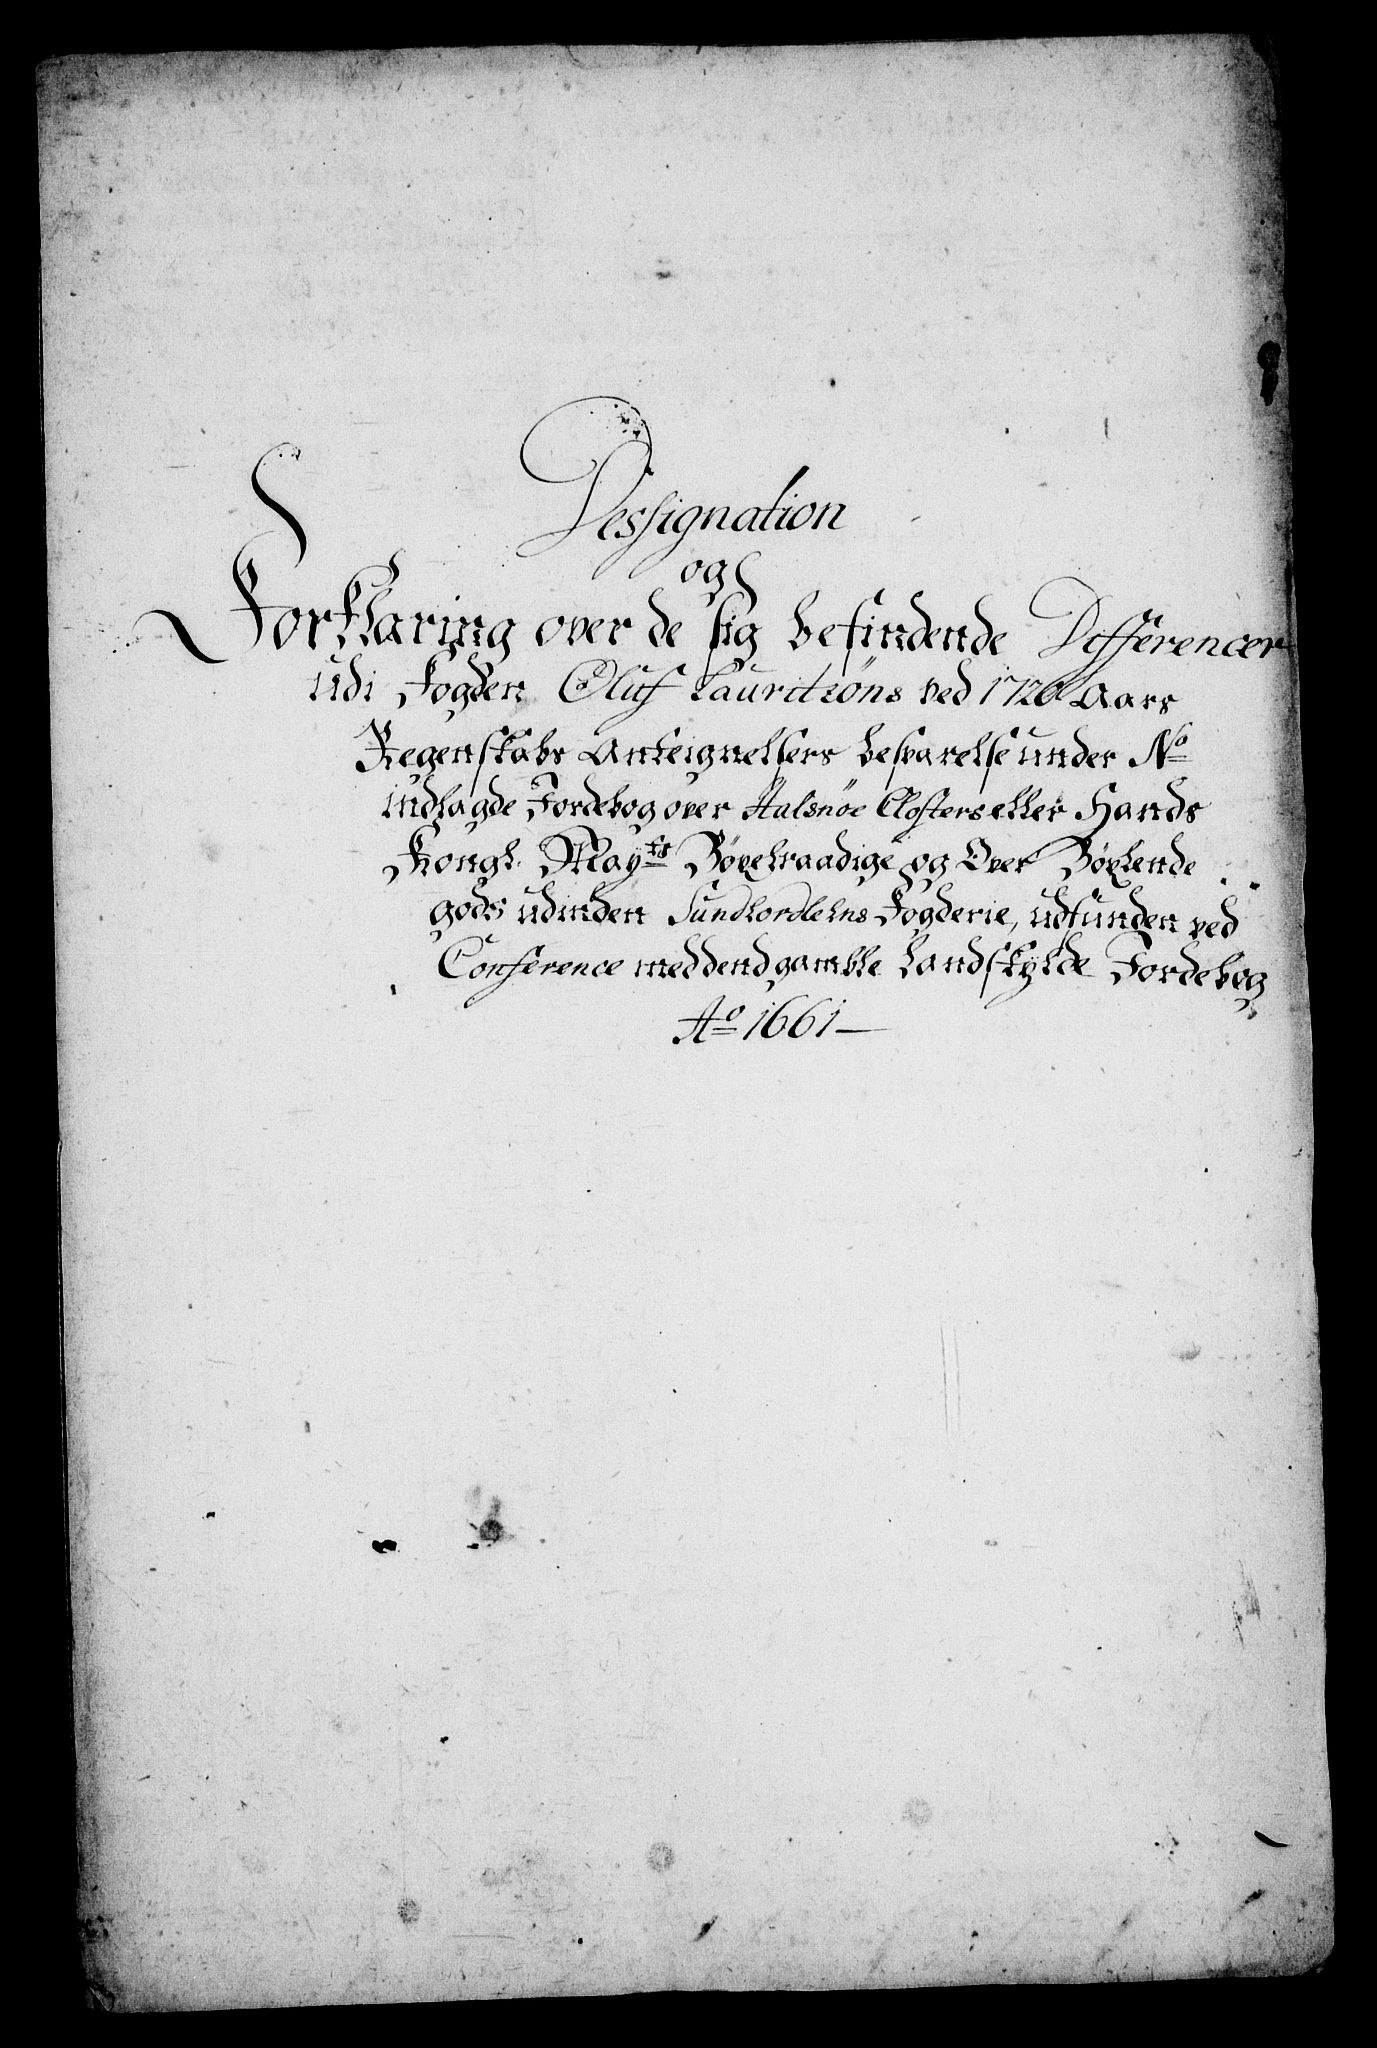 Dessignation
og
Forklaring over de sig befindende Differencer
udi Fogden Oluf Lauritsøns ved 1720 Aars
Regenskabs Anteignelsers besvarelse under No
indlagde Jordebog over Halsnöe Closters eller Hands
Kongl. Mayts Böxelraadige og Over Böxlende
gods udinden Sundhordlehns Fogderie, udfunden ved
Conference med dend gamble Landskylde Jordebog
Ao 1661